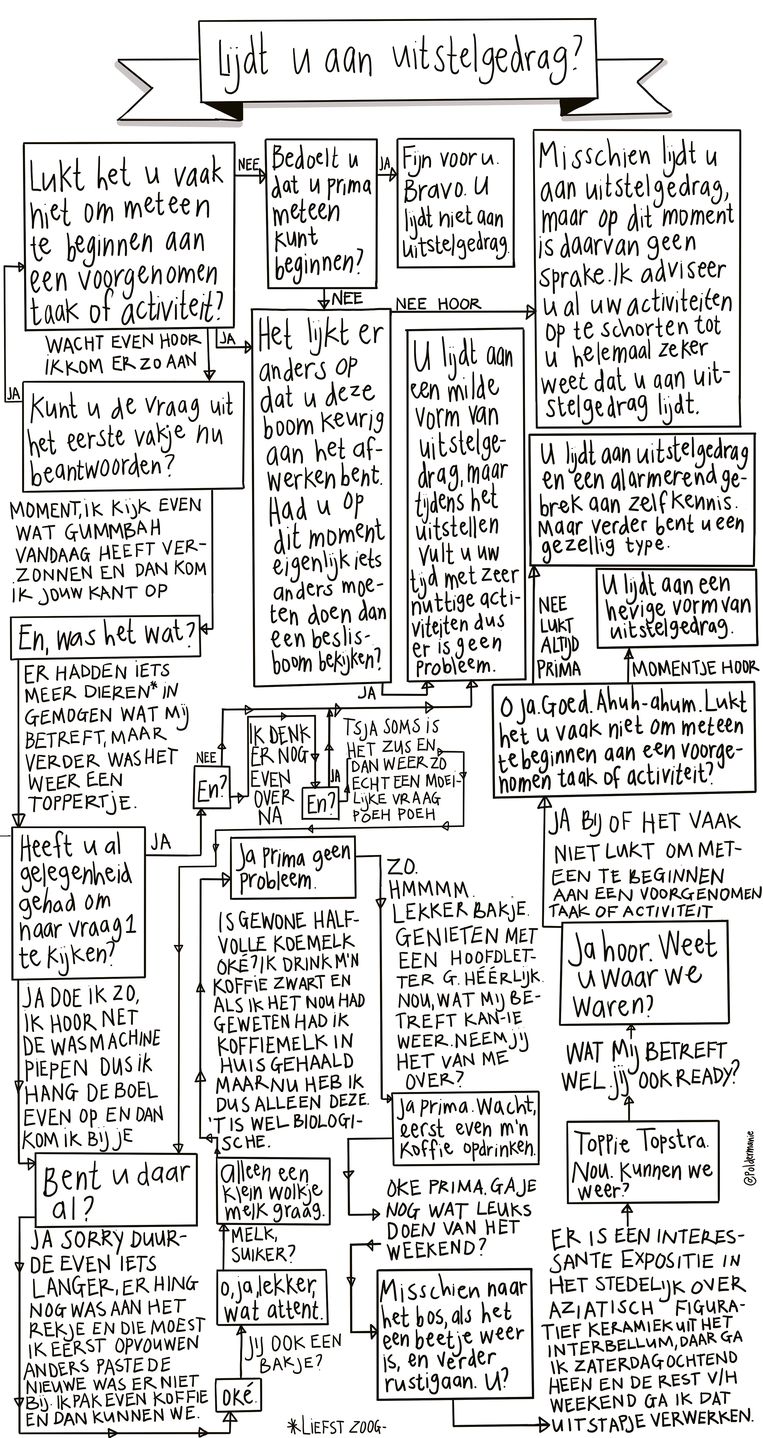 Lijdt u aan uitstelgedrag?
Lukt het u vaak
niet om meteen
te beginnen aan
een voorgenomen
taak of activiteit?
NEE
Bedoelt u
dat u prima
meteen
kunt
beginnen?
JA
Fijn voor u.
Bravo. U
lijdt niet aan
uitstelgedrag.
Misschien lijdt u
aan uitstelgedrag,
maar op dit moment
is daarvan geen
sprake. Ik adviseer
u al uw activiteiten
op te schorten tot
u helemaal zeker
weet dat u aan uit-
stelgedrag lijdt.
NEE
NEE HOOR
JA
WACHT EVEN HOOR
IK KOM ER ZO AAN
JA
Kunt u de vraag uit
het eerste vakje nu
beantwoorden?
Het lijkt er
anders op
dat u deze
boom keurig
aan het af-
werken bent.
Had u op
dit moment
eigenlijk iets
anders moe-
ten doen dan
een beslis-
boom bekijken?
JA
U lijdt aan
een milde
vorm van
uitstelge-
drag, maar
tijdens het
uitstellen
vult u uw
tijd met zeer
nuttige acti-
viteiten dus
er is geen
probleem.
U lijdt aan uitstelgedrag
en een alarmerend ge-
brek aan zelfkennis.
Maar verder bent u een
gezellig type.
NEE
LUKT
ALTIJD
PRIMA
U lijdt aan een
hevige vorm van
uitstelgedrag.
MOMENTJE HOOR
O ja. Goed. Ahuh-ahum. Lukt
het u vaak niet om meteen
te beginnen aan een voorge-
nomen taak of activiteit?
MOMENT, IK KIJK EVEN
WAT GUMMBAH
VANDAAG HEEFT VER-
ZONNEN EN DAN KOM
IK JOUW KANT OP
En, was het wat?
ER HADDEN IETS
MEER DIEREN* IN
GEMOGEN WAT MIJ
BETREFT, MAAR
VERDER WAS HET
WEER EEN
TOPPERTJE.
NEE
En?
IK DENK
ER NOG
EVEN
OVER
NA
En?
JA
TSJA SOMS IS
HET ZUS EN
DAN WEER ZO
ECHT EEN MOEI-
LIJKE VRAAG
POEH POEH
Heeft u al
gelegenheid
gehad om
naar vraag 1
te kijken?
JA
JA DOE IK ZO,
IK HOOR NET
DE WASMACHINE
PIEPEN DUS IK
HANG DE BOEL
EVEN OP EN DAN
KOM IK BIJ JE
Bent u daar
al?
JA SORRY DUUR-
DE EVEN IETS
LANGER, ER HING
NOG WAS AAN HET
REKJE EN DIE MOEST
IK EERST OPVOUWEN
ANDERS PASTE DE
NIEUWE WAS ER NIET
BIJ. IK PAK EVEN KOFFIE
EN DAN KUNNEN WE.
oké.
JIJ OOK EEN
BAKJE?
o, ja, lekker,
wat attent.
MELK,
SUIKER?
alleen een
klein wolkje
melk graag.
IS GEWONE HALF-
VOLLE KOEMELK
OKÉ? IK DRINK M'N
KOFFIE ZWART EN
ALS IK HET NOU HAD
GEWETEN HAD IK
KOFFIEMELK IN
HUIS GEHAALD
MAAR NU HEB IK
DUS ALLEEN DEZE.
'T IS WEL BIOLOGI-
SCHE.
Ja prima geen
probleem.
ZO.
HMMMM.
LEKKER BAKJE.
GENIETEN MET
EEN HOOFDLET-
TER G. HÉÉRLIJK.
NOU, WAT MIJ BE-
TREFT KAN-IE
WEER. NEEM JIJ
HET VAN ME
OVER?
Ja prima. Wacht,
eerst even m'n
koffie opdrinken.
OKE PRIMA. GA JE
NOG WAT LEUKS
DOEN VAN HET
WEEKEND?
Misschien naar
het bos, als het
een beetje weer
is, en verder
rustig aan. U?
ER IS EEN INTERES-
SANTE EXPOSITIE IN
HET STEDELIJK OVER
AZIATISCH FIGURA-
TIEF KERAMIEK UIT HET
INTERBELLUM, DAAR GA
IK ZATERDAGOCHTEND
HEEN EN DE REST V/H
WEEKEND GA IK DAT
UITSTAPJE VERWERKEN.
Toppie Topstra.
Nou. Kunnen we
weer?
WAT MIJ BETREFT
WEL. JIJ OOK READY?
Ja hoor. Weet
u waar we
waren?
JA BIJ OF HET VAAK
NIET LUKT OM MET-
EEN TE BEGINNEN
AAN EEN VOORGENOMEN
TAAK OF ACTIVITEIT
*LIEFST ZOOG-
@Poldermanie